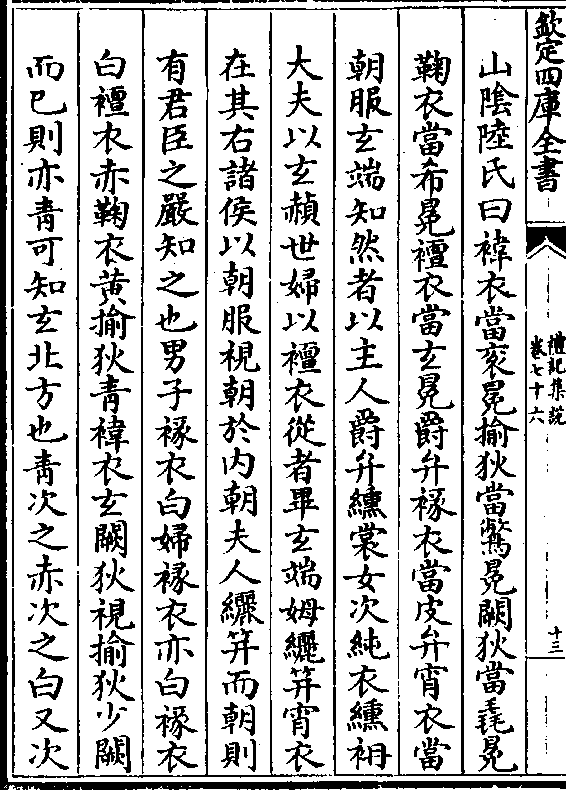 欽定四庫全書
禮記集説
卷七十六
十三
山陰陸氏曰褘衣當衮冕揄狄當鷩冕闕狄當毳冕
鞠衣當希冕襢衣當玄冕爵弁褖衣當皮弁宵衣當
朝服玄端知然者以主人爵弁纁裳女次純衣纁袡
大夫以玄赬世婦以襢衣從者畢玄端姆纚笄宵衣
在其右諸侯以朝服視朝於内朝夫人纚笄而朝則
有君臣之嚴知之也男子褖衣白婦褖衣亦白褖衣
白襢衣赤鞠衣黄揄狄青褘衣玄闕狄視揄狄少闕
而已則亦青可知玄北方也青次之赤次之白又次